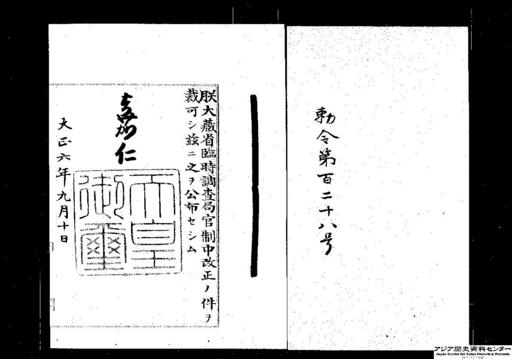 勅令第百二十八号
朕大藏省臨時調査局官制中改正ノ件ヲ
裁可シ茲ニ之ヲ公布セシム
嘉仁
天皇御璽
大正六年九月十日
アジア歴史資料センター
Japan Center for Asian Historical Records